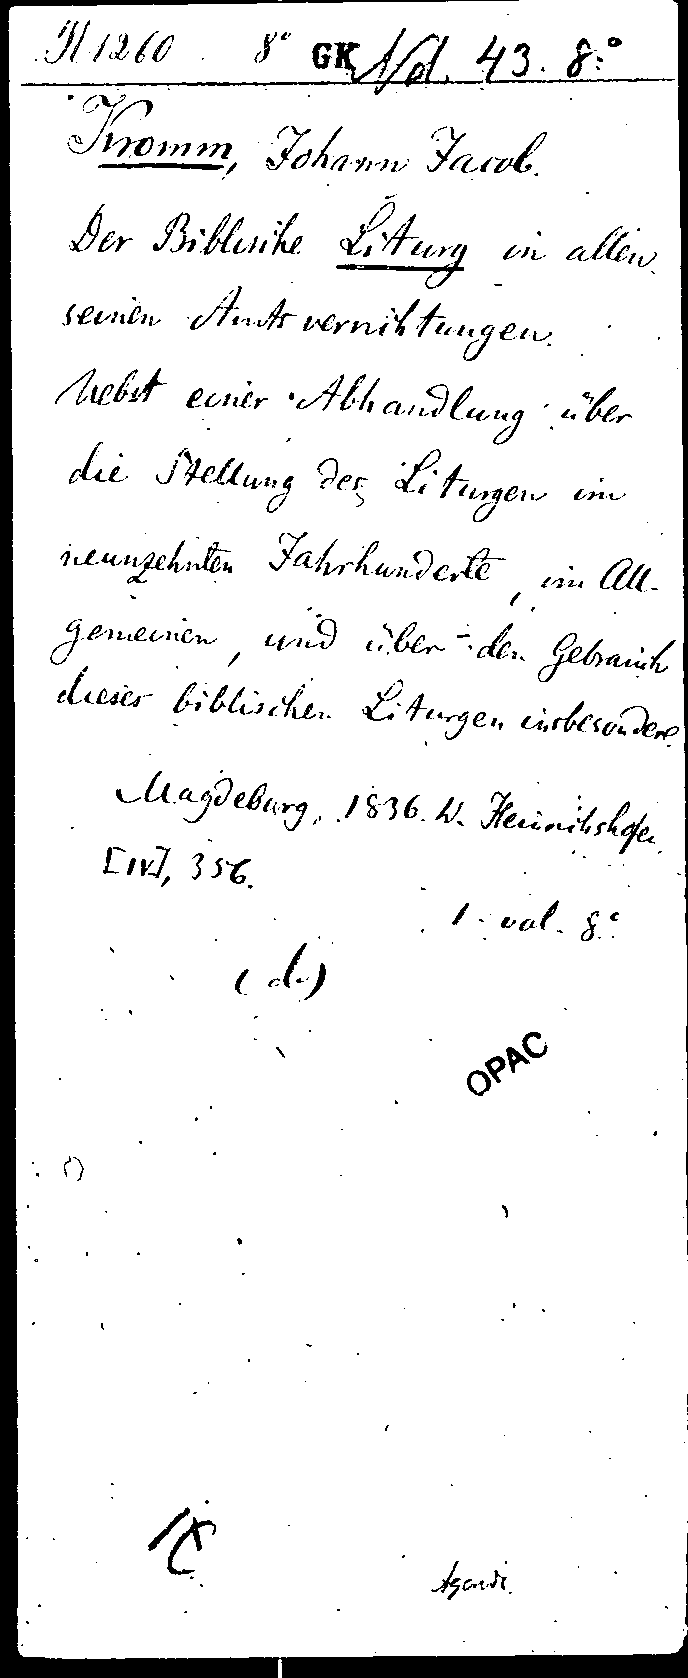 H 1260 8° GK Nd. 43. 8.°
Kromm, Johann Jacob.
Der Biblische Liturg in allen
seinen Amtsverrichtungen.
Nebst einer Abhandlung über
die Stellung des Liturgen im
neunzehnten Jahrhunderte, im All-
gemeinen, und über den Gebrauch
dieses biblischen Liturgen insbesondere.
Magdeburg, 1836. W. Heinrichshofen.
[IV], 356.
1 vol. 8°
(d.)
OPAC